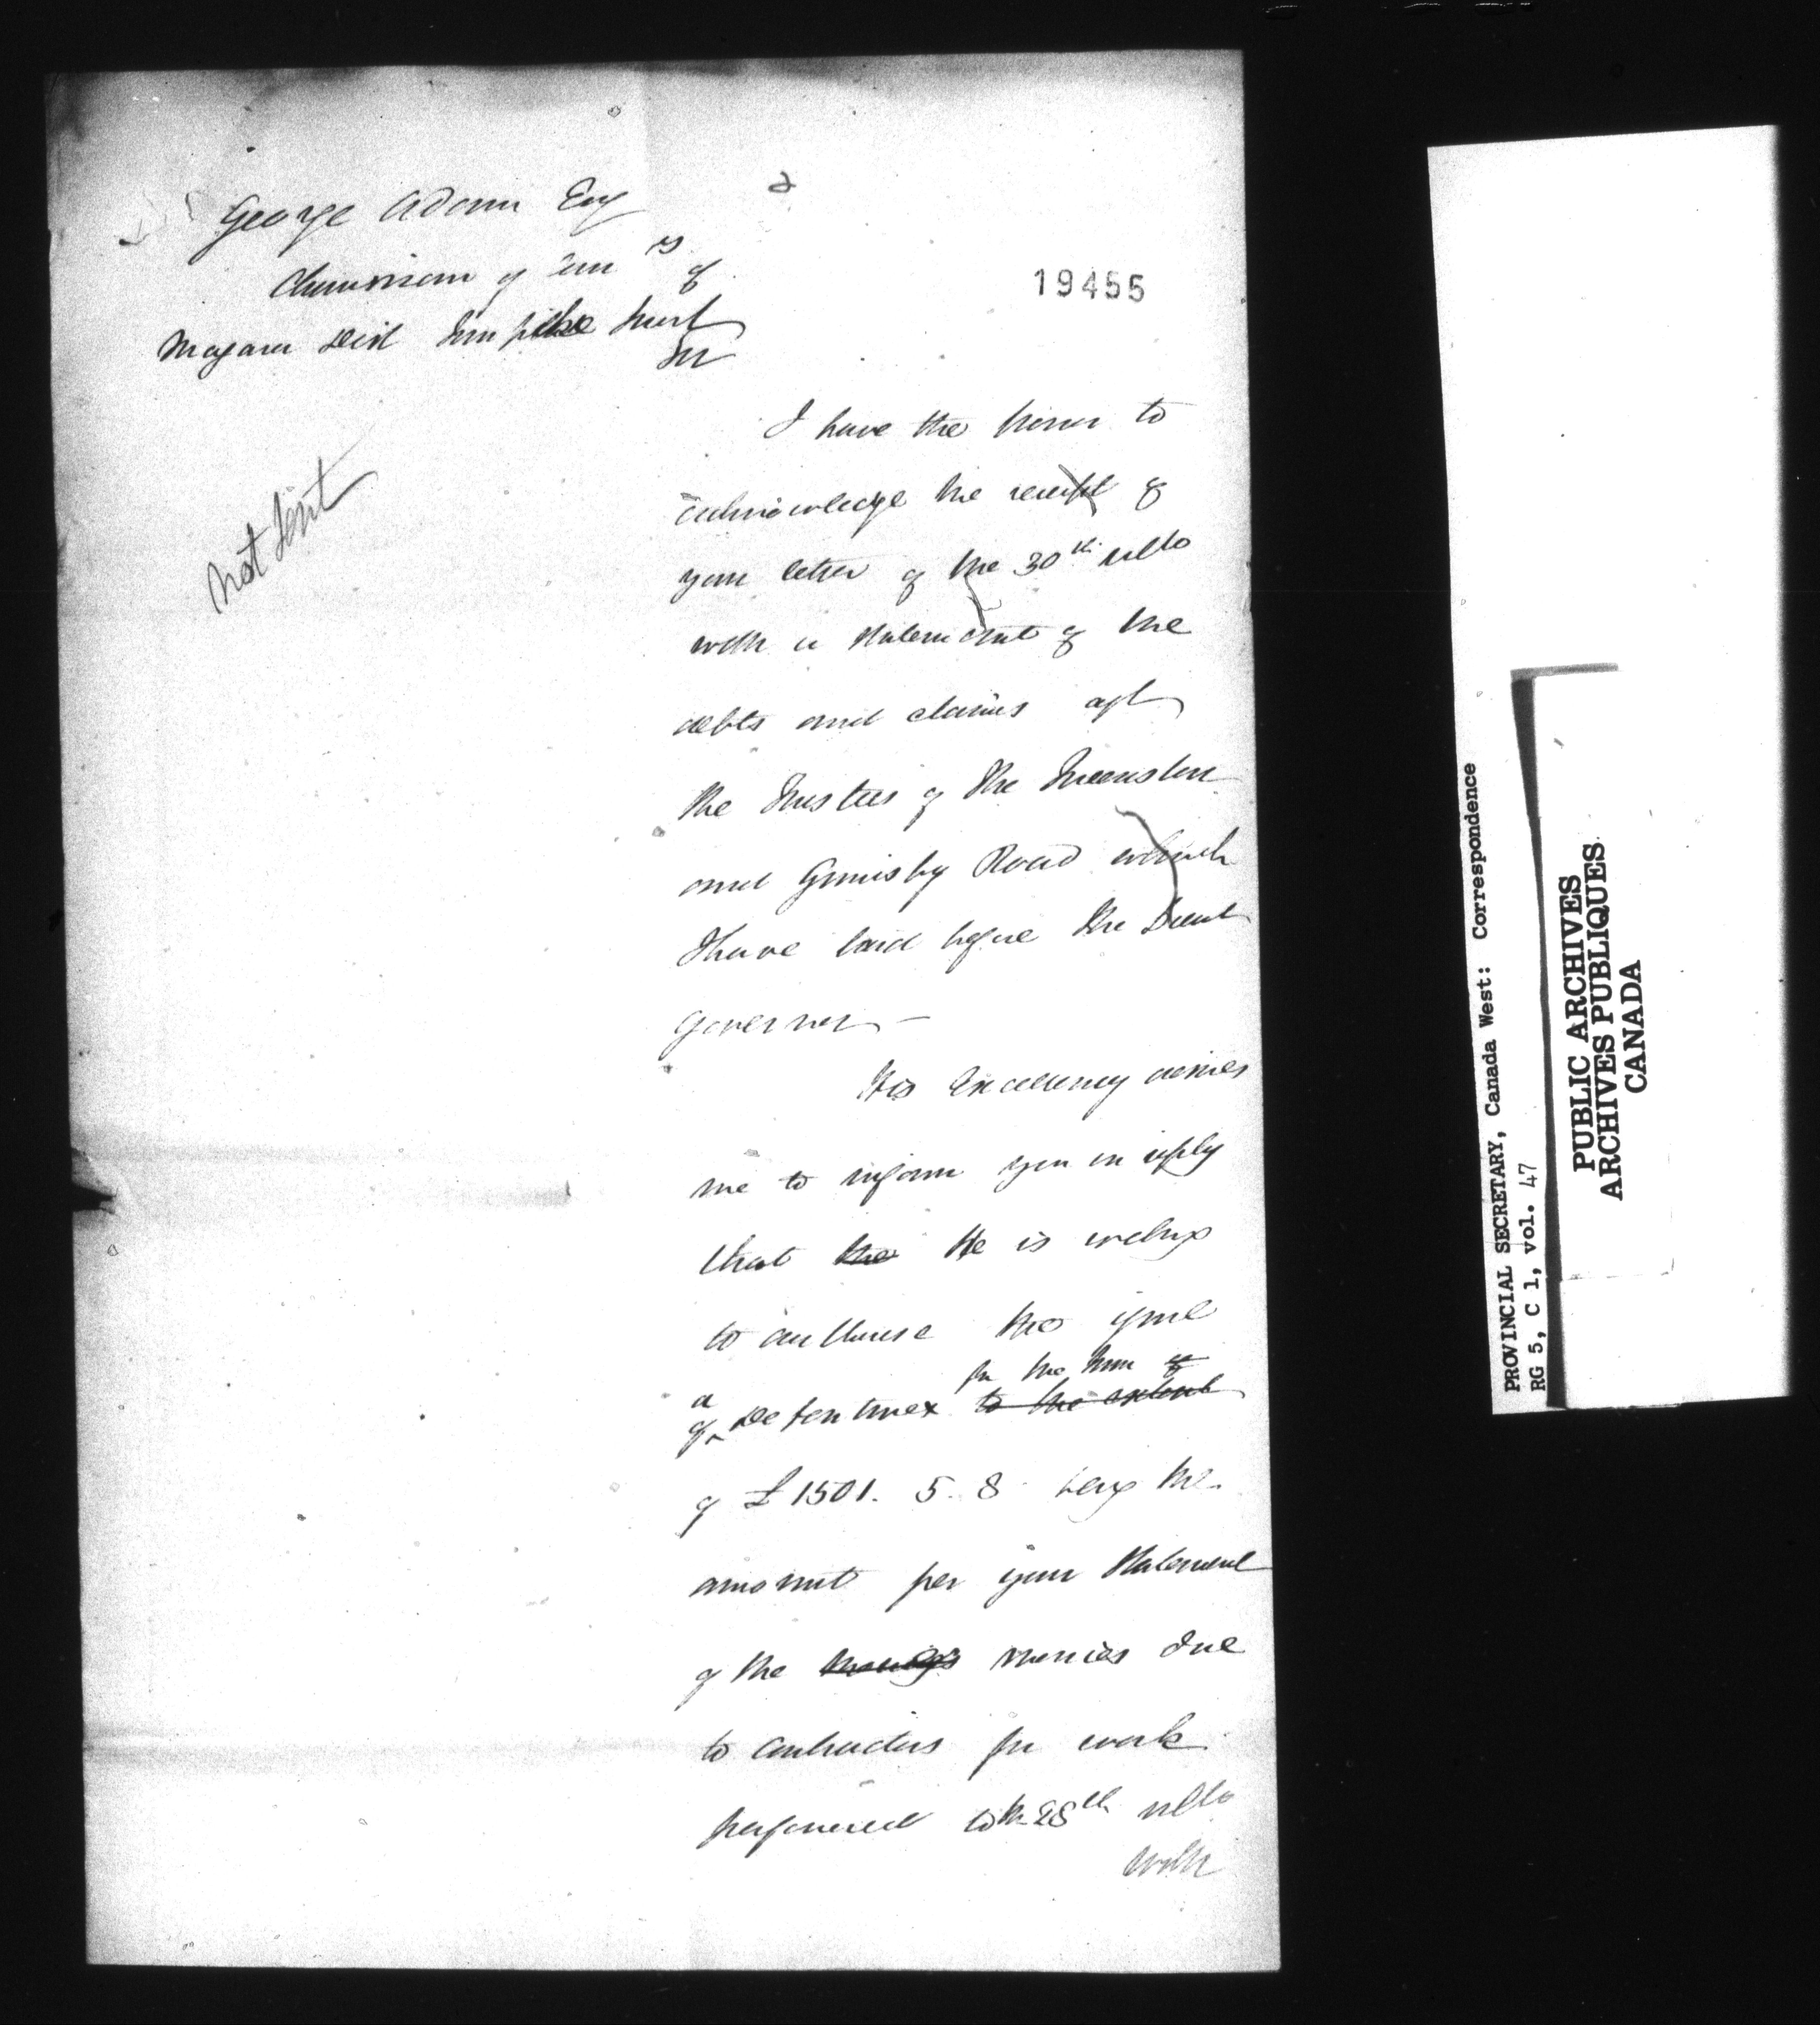 George Adams Esq
Chairman of Com rs of
Niagara Dist Turnpike Trust
Sir
19455
Not Sent
I have the honor to
acknowledge the receipt of
your letter of the 30th ulto
with a statement of the
debts and claims agt
the Trustees of the Queenston
and Grimsby Road which
I have laid before the Lieut
Governor —
His Excellency desires
me to inform you in reply
that the He is willing
to authorise the issue
for the sum of
of a Debenture to the extent
of £1501. 5. 8 being the
amount per your statement
of the monies due
to contractors for work
performed to the 28th ulto
with
PROVINCIAL SECRETARY, Canada West: Correspondence
RG 5, C 1, vol. 47
PUBLIC ARCHIVES
ARCHIVES PUBLIQUES
CANADA